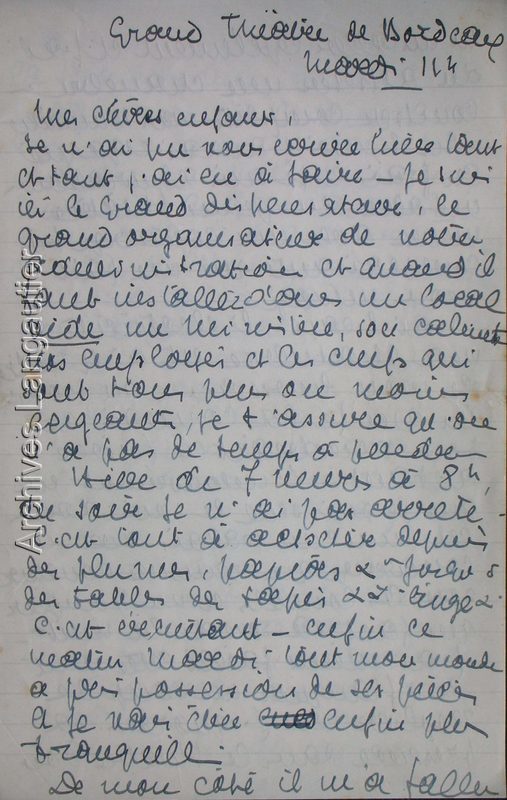 Grand Théâtre de Bordeaux
Mardi 11h
Mes chères enfants,
Je n'ai pu vous écrire hier tant
et tant j'ai eu à faire - Je suis
ici le Grand dispensateur, le
grand organisateur de notre
administration et quand il
faut installer dans un local
vide un ministère, son cabinet
ses employés et les chefs qui
sont tous plus ou moins
exigeants, je t'assure qu'on
n'a pas de temps à perdre
Hier de 7 heures à 8h,
du soir je n'ai pas arrêté -
C'est tout à acheter depuis
des plumes, papiers &a jusqu'à
des tables des tapis && linge &a
C'est éreintant - enfin ce
matin Mardi tout mon monde
a pris possession de ses pièces
& je vais être enfin plus
tranquille.
De mon côté il m'a fallu
Archives Langautier